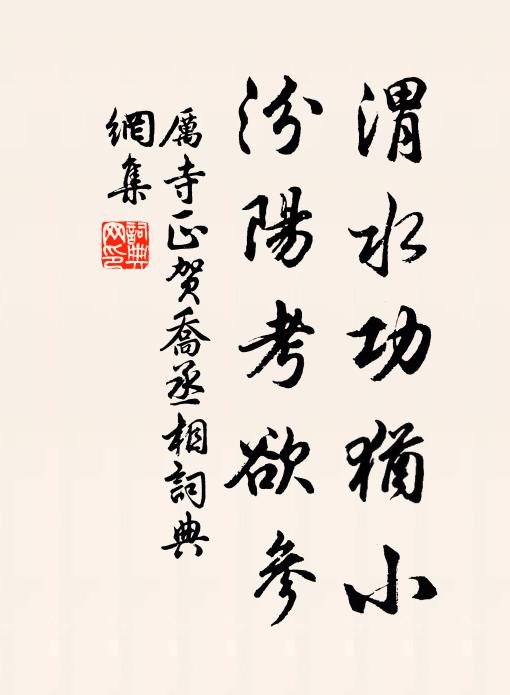 渭水功猶小
汾陽考欲參
厲寺正賀喬丞相詞典
網集
詞典
网印